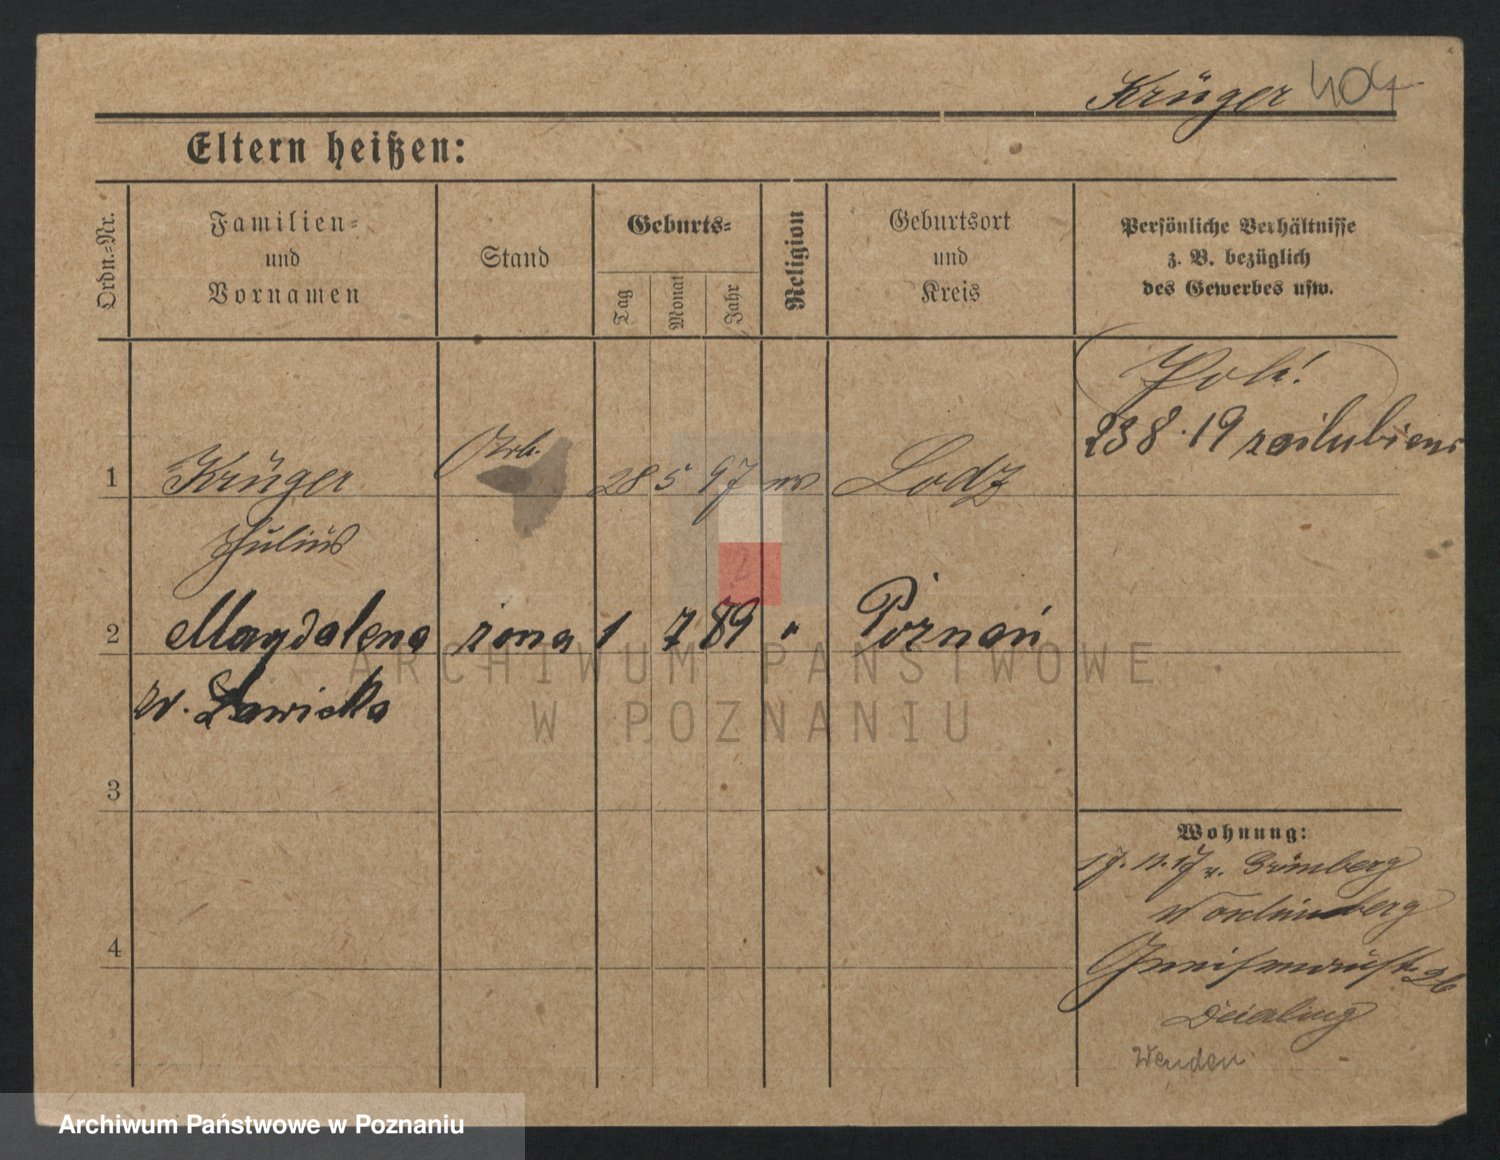 Krüger 404
Eltern heißen:
Ordn.-Nr.
Familien-
und
Vornamen
Stand
Geburts-
Tag
Monat
Jahr
Religion
Geburtsort
und
Kreis
Persönliche Verhältnisse
z. B. bezüglich
des Gewerbes usw.
Pole!
23 8. 19 zaślubieni
1 Krüger Arb. 28 5 97 Lodz
Julius
2 Magdalena żona 1 7 89 " Poznań
z. Ławicka
3
4
Wohnung:
17. 11. 17 v. Grünberg
Gneisenaustr. 26
Wenden
ARCHIWUM PAŃSTWOWE
W POZNANIU
Archiwum Państwowe w Poznaniu